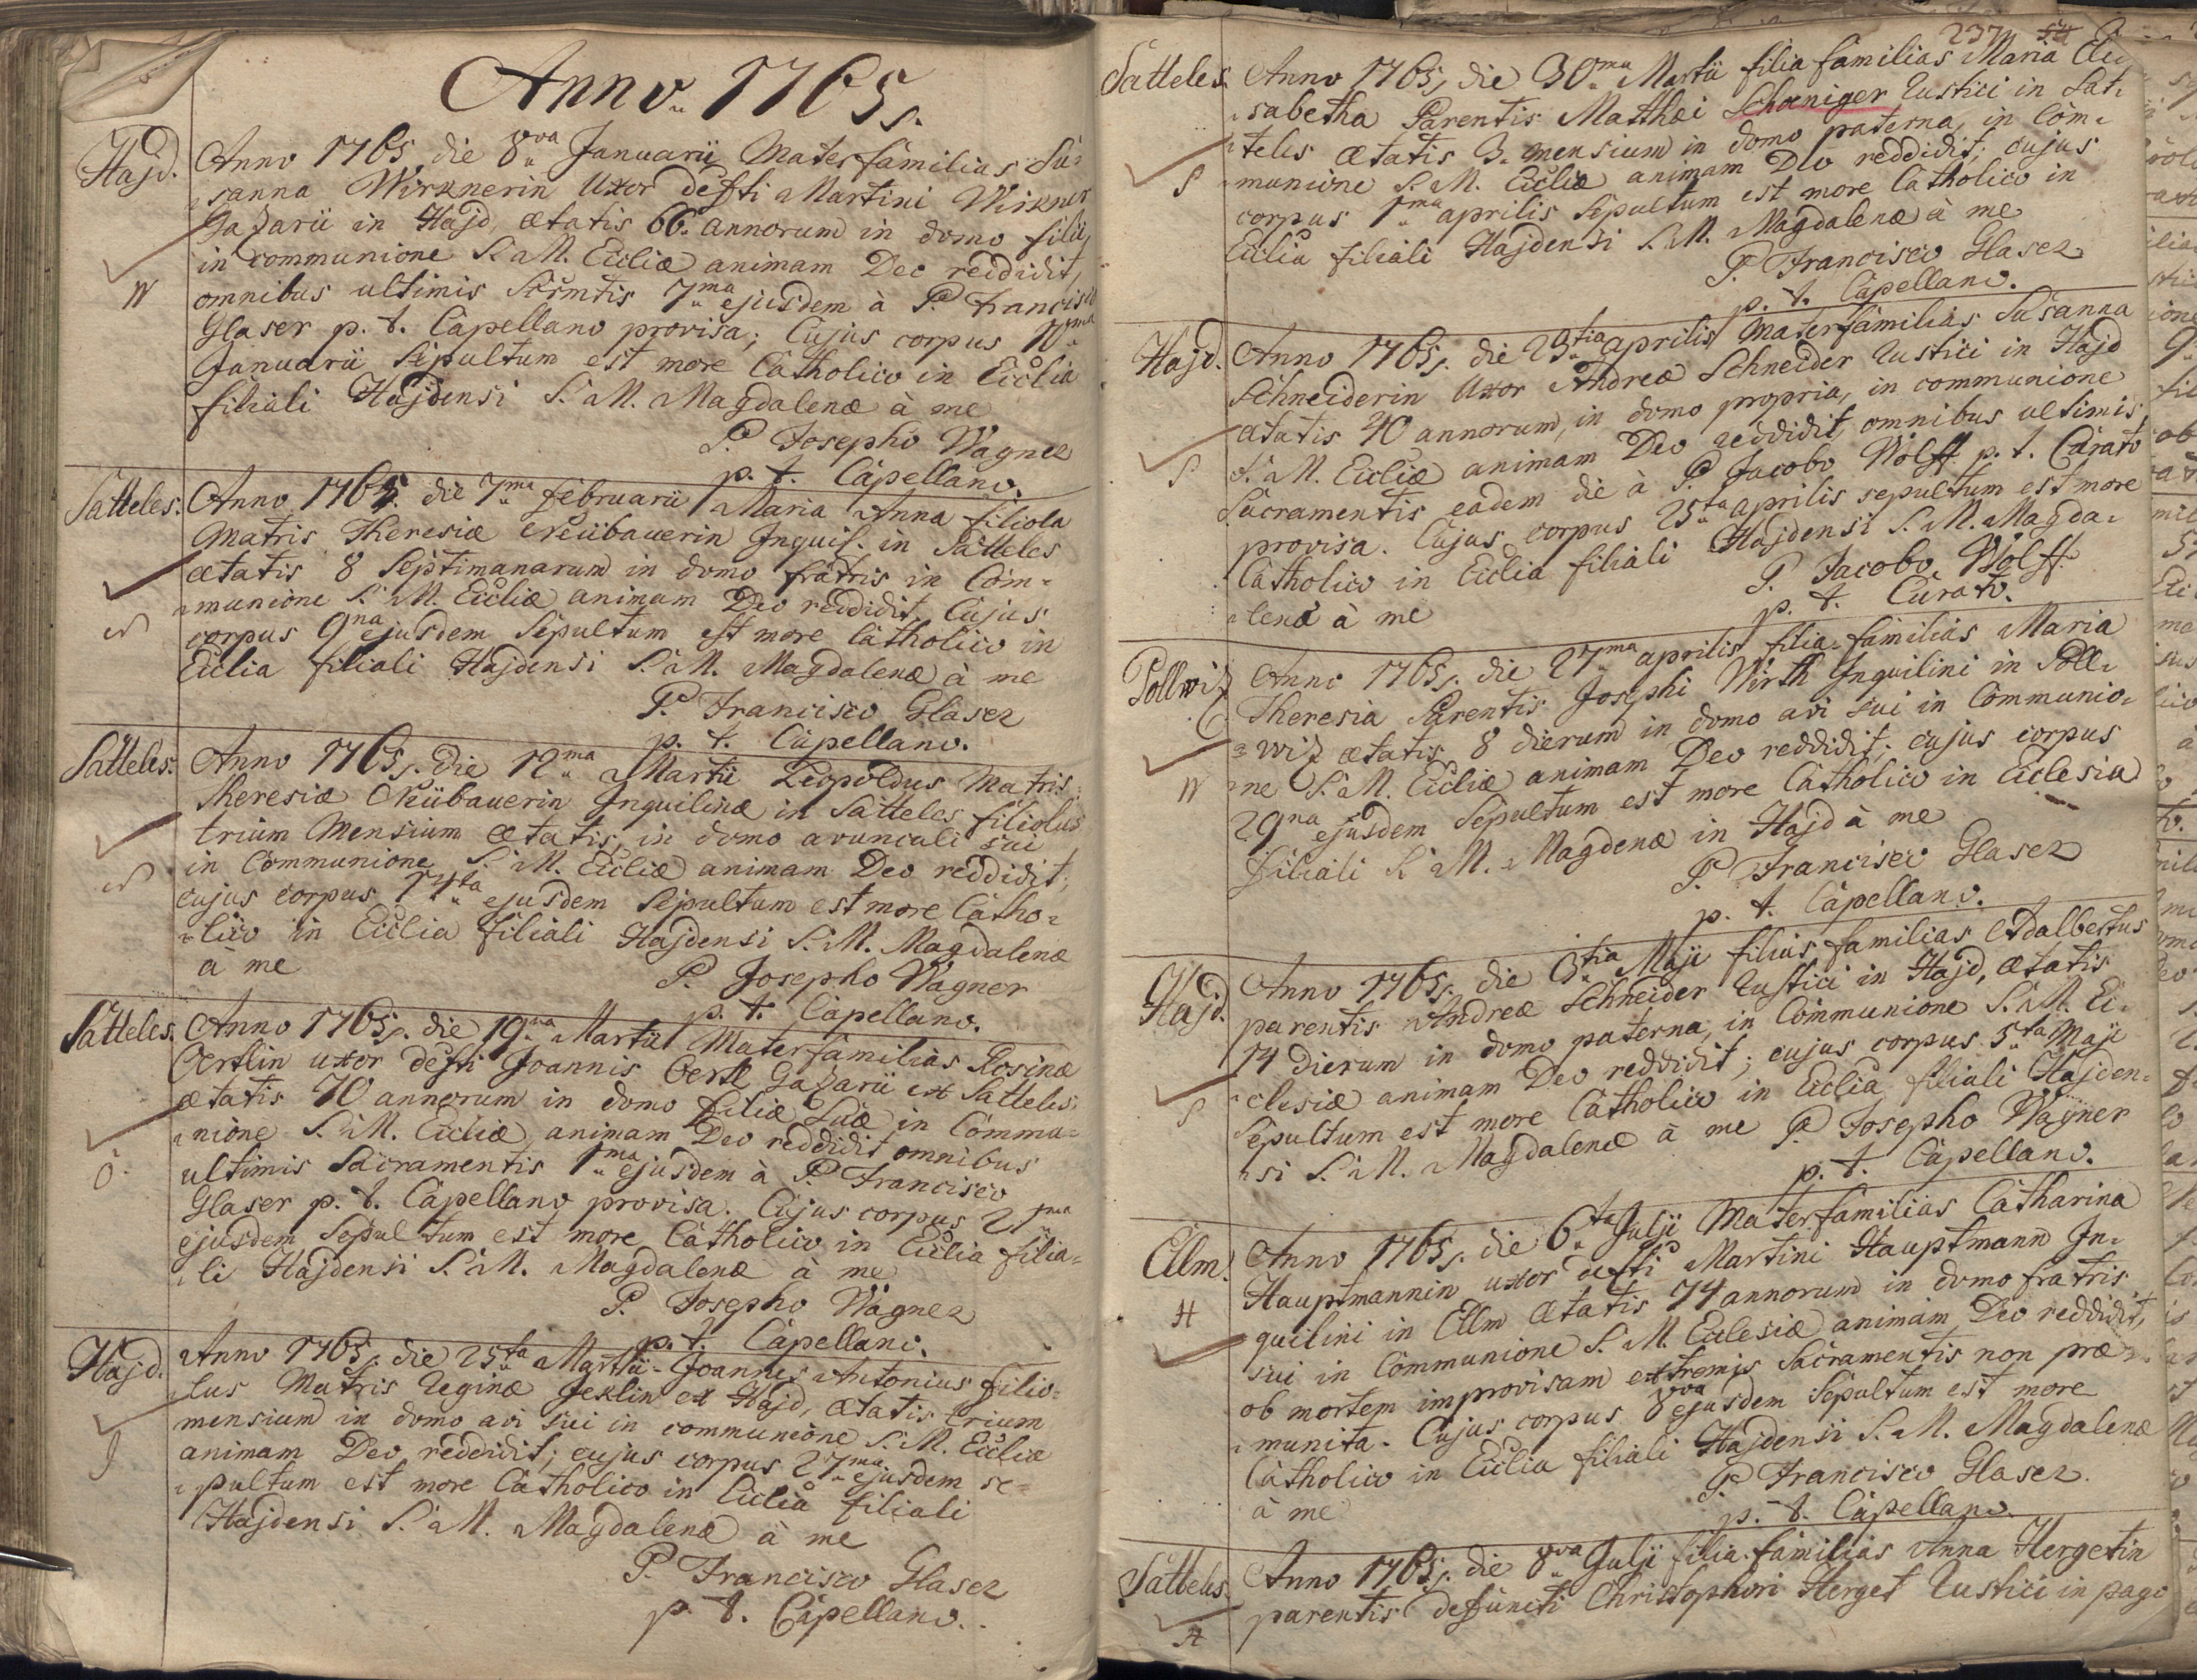 Anno 1765.
Hajd.
Anno 1765 die 8va Januarii Materfamilias Su=
sanna Wirknerin Uxor defti Martini Wirkner
Gazarii in Hajd, ætatis 66. annorum in domo filii,
in communione S. M. Eccliæ animam Deo reddidit,
omnibus ultimis Scrmtis 7ma ejusdem à P. Francisco
Glaser p. t. Capellano provisa; Cujus corpus 10ma
Januarii Sepultum est more Catholico in Ecclia
filiali Hajdensi S. M. Magdalenæ à me
P. Josepho Wagner
p. t. Capellano.
W
Satteles.
Anno 1765. die 7ma februarii Maria Anna filiola
Matris Theresiæ Neübauerin Inquil. in Satteles
ætatis 8 Septimanarum in domo fratris in Com=
munione S. M. Eccliæ animam Deo reddidit, Cujus
corpus 9na ejusdem Sepultum est more Catholico in
Ecclia filiali Hajdensi S. M. Magdalenæ à me
P. Francisco Glaser
p. t. Capellano.
N
Satteles.
Anno 1765. die 12ma Martii Leopoldus Matris
Theresiæ Neübauerin Inquilinæ in Satteles filiolus
trium Mensium ætatis, in domo avunculi sui
in Communione S. M. Eccliæ animam Deo reddidit;
cujus corpus 14ta ejusdem Sepultum est more Catho=
lico in Ecclia filiali Hajdensi S. M. Magdalenæ
à me
P. Josepho Wagner
p. t. Capellano.
N
Satteles.
Anno 1765. die 19na Martii Materfamilias Rosina
Oertlin uxor defti Joannis Oertl Gazarii ex Satteles
ætatis 70 annorum in domo filiæ Suæ in Commu=
nione S. M. Eccliæ animam Deo reddidit omnibus
ultimis Sacramentis 1ma ejusdem à P. Francisco
Glaser p. t. Capellano provisa. Cujus corpus 21ma
ejusdem Sepultum est more Catholico in Ecclia filia=
li Hajdensi S. M. Magdalenæ à me
P. Josepho Wagner
p. t. Capellano.
O.
Hajd.
Anno 1765. die 25ta Martii Joannes Antonius filio=
lus Matris Reginæ Jeklin ex Hajd, ætatis trium
mensium in domo avi sui in communione S. M. Eccliæ
animam Deo reddidit; cujus corpus 27ma ejusdem se=
pultum est more Catholico in Ecclia filiali
Hajdensi S. M. Magdalenæ à me
P. Francisco Glaser
p. t. Capellano.
J
237
Satteles.
Anno 1765, die 30ma Martii filia familias Maria Eli
sabetha Parentis Matthæi Schaniger Rustici in Sat=
teles ætatis 3. mensium in domo paterna, in Com=
munione S. M. Eccliæ animam Deo reddidit, cujus
corpus 1ma aprilis Sepultum est more Catholico in
Ecclia filiali Hajdensi S. M. Magdalenæ à me
P. Francisco Glaser
p. t. Capellano.
S
Hajd.
Anno 1765. die 23tia aprilis Materfamilias Susanna
Schneiderin Uxor Andreæ Schneider Rustici in Hajd
ætatis 40 annorum, in domo propria, in communione
S. M. Eccliæ animam Deo reddidit, omnibus ultimis
Sacramentis eadem die à P. Jacobo Wolff p. t. Curato
provisa. Cujus corpus 25ta aprilis sepultum est more
Catholico in Ecclia filiali Hajdensi S. M. Magda=
lenæ à me
P. Jacobo Wolff
p. t. Curato.
S
Pollwiz
Anno 1765. die 27ma aprilis filia familias Maria
Theresia Parentis Josephi Wirth Inquilini in Poll=
wiz ætatis 8 dierum in domo avi sui in Communio=
ne S. M. Eccliæ animam Deo reddidit; cujus corpus
29na ejusdem Sepultum est more Catholico in Ecclesia
filiali S. M. Magdenæ in Hajd à me
P. Francisco Glaser
p. t. Capellano.
W
Hajd.
Anno 1765. die 3tia Maji filius familias Adalbertus
parentis Andreæ Schneider Rustici in Hajd, ætatis
14 dierum in domo paterna, in Communione S. M. Ec=
clesiæ animam Deo reddidit; cujus corpus 5ta Maji
Sepultum est more Catholico in Ecclia filiali Hajden=
si S. M. Magdalenæ à me P. Josepho Wagner
p. t. Capellano.
S
Ellm.
Anno 1765. die 6ta Julji Materfamilias Catharina
Hauptmannin uxor defti Martini Hauptmann In=
quilini in Ellm ætatis 74 annorum in domo fratris
sui in Communione S. M. Ecclesiæ animam Deo reddidit,
ob mortem improvisam extremis Sacramentis non præ
munita. Cujus corpus 8va ejusdem Sepultum est more
Catholico in Ecclia filiali Hajdensi S. M. Magdalenæ
à me
P. Francisco Glaser.
p. t. Capellano.
H
Satteles.
Anno 1765. die 8va Julji filia familias Anna Hergetin
parentis defuncti Christophori Herget Rustici in pago
H